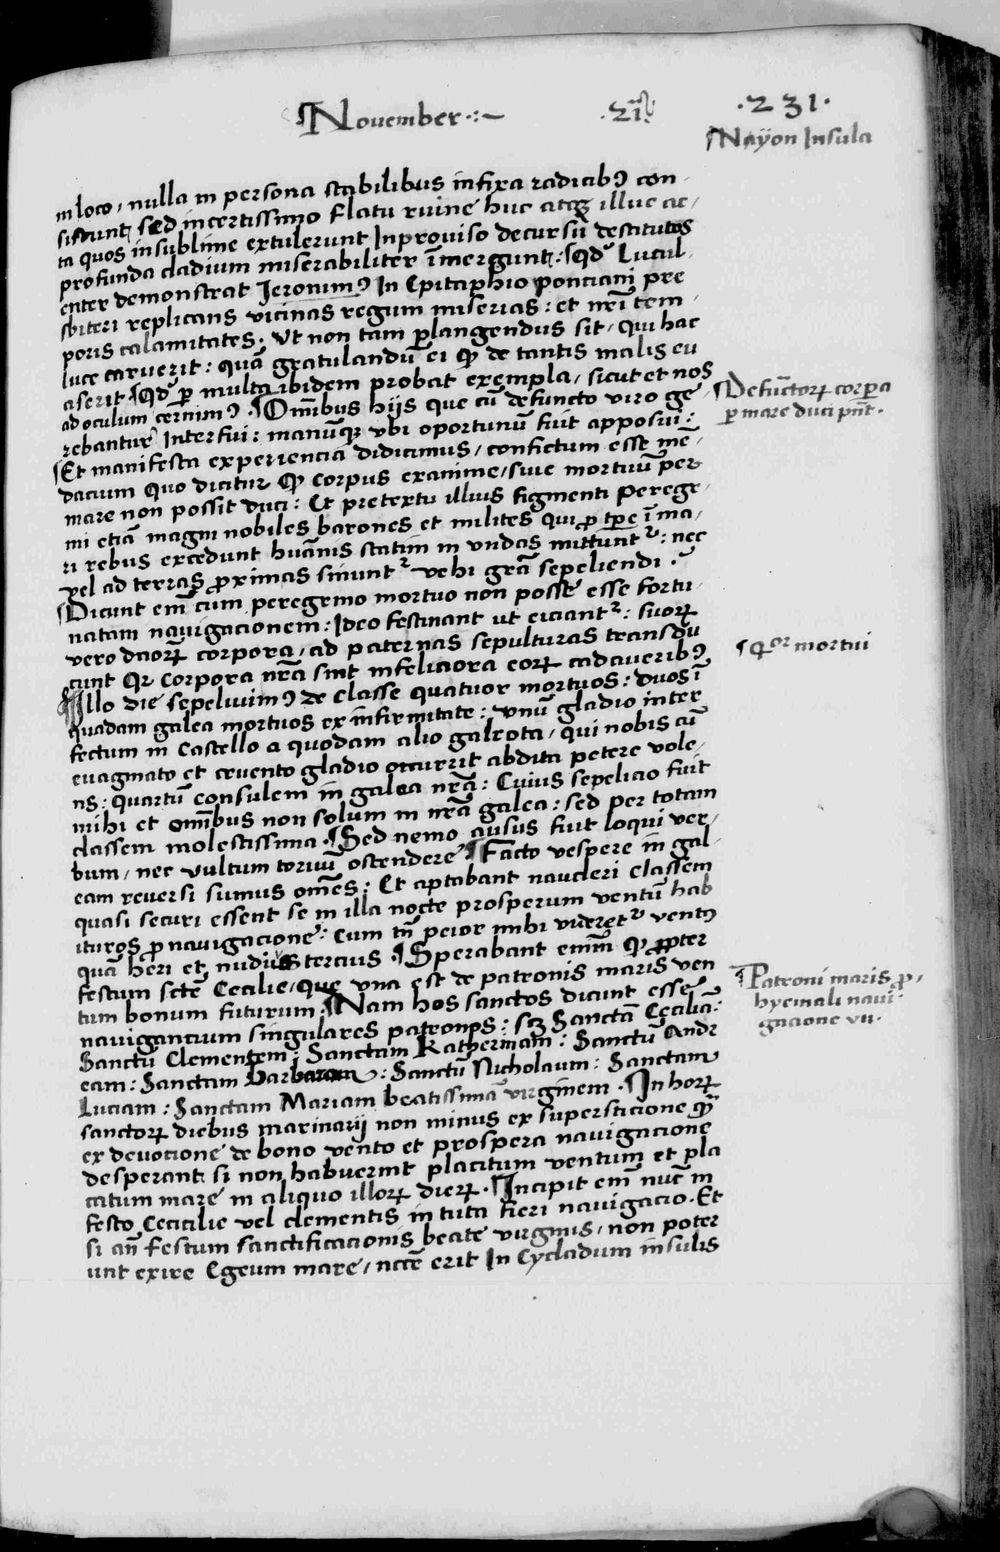 November ·:~ ·21· ·231·
Nayon Insula
in loco, nulla in persona stabilibus infixa radicibꝰ con-
sistunt, sed incertissimo flatu ruine huc atqꝫ illuc ac-
ta quos in sublime extulerunt Inproviso decursu destitutos
profunda cladium miserabiliter ī̄mergunt: qd̓ Lucul-
enter demonstrat Ieronimꝰ In Epitaphio ponciani pre
sbiteri replicans vicinas regum miserias: et nrī tem-
poris calamitates. Ut non tam plangendus sit, qui hac
luce caruerit: quā gratulandū ei qꝫ de tantis malis eu
aserit. qd̓ ꝑ multa ibidem probat exempla, sicut et nos
ad oculum cernimꝰ. ¶Omībus hijs que cū defuncto viro ge-
rebantur Interfui: manūqꝫ ubi oportunū fuit apposui:
Et manifesta experiencia didicimus, confictum esse me-
dacium quo dicitur qꝫ corpus exanime, sive mortuū per
mare non possit duci: Et pretextu illius figmenti perege-
mi etiā magni nobiles barones et milites qui ꝓ tꝑe ī ma-
ri rebus excedunt huānis statim in undas mittunt᷑: nec
vel ad terras ꝓximas sinunt᷑ vehi grā sepeliendi.
Dicunt em̄ cum peregrino mortuo non posse esse fortu-
natam navigacionem: Ideo festinant ut eiciant᷑: suoꝝ
vero dn̄oꝝ corpora, ad paternas sepulturas transdu
cunt qꝛ corpora nrā sint infeliciora eoꝝ cadaveribꝰ
Illo die sepelivimꝰ de classe quatuor mortuos: duos ī
quadam galea mortuos ex infirmitate: unū gladio inter
fectum in Castello a quodam alio galeota, qui nobis cū
evaginato et cruento gladio occurrit abdita petere vole-
ns: quartū consulem in galea nrā: Cuius sepelicio fuit
mihi et omībus non solum in nrā galea: sed per totam
classem molestissima. ¶Sed nemo ausus fuit loqui ver-
bum, nec vultum torvū ostendere. ¶Facto vespere in gal-
eam reversi sumus omēs: Et aptabant naucleri classem
quasi securi essent se in illa nocte prosperum ventū hab
ituros ꝓ navigacione: Cum tn̄ peior mihi videret᷑ ventꝰ
quā heri et nudius tercius. ¶Sperabant enim̄ qꝫ ꝓpter
festum scte Cecilie, que una est de patronis maris ven
tum bonum futurum. ¶Nam hos sanctos dicunt esse
navigantium singulares patronos: sꝫ Sanctā Ceciliā:
Sanctū Clementem: Sanctam Katherinam: Sanctū Andr
eam: Sanctam Barbaram: Sanctū Nicholaum: Sanctam
Luciam: Sanctam Mariam beatissimā virginem. ¶In hoꝝ
sanctoꝝ diebus marinarij non minus ex supersticione qꝫ
ex devocione de bono vento et prospera navigacione
desperant, si non habuerint placitum ventum et pla
catum mare in aliquo illoꝝ dieꝝ. ¶Incipit em̄ nūc in
festo Cecicilie vel clementis in tuta fieri navigacio. Et
si an̄ festum sanctificacionis beate virginis, non poter
unt exire Egeum mare, nccē erit In Cycladum insulis
Defūctoꝝ corꝑa
ꝑ mare duci pn̄t.
¶4or mortui
¶Patroni maris ꝓ
hyemali navi-
gacione vii.